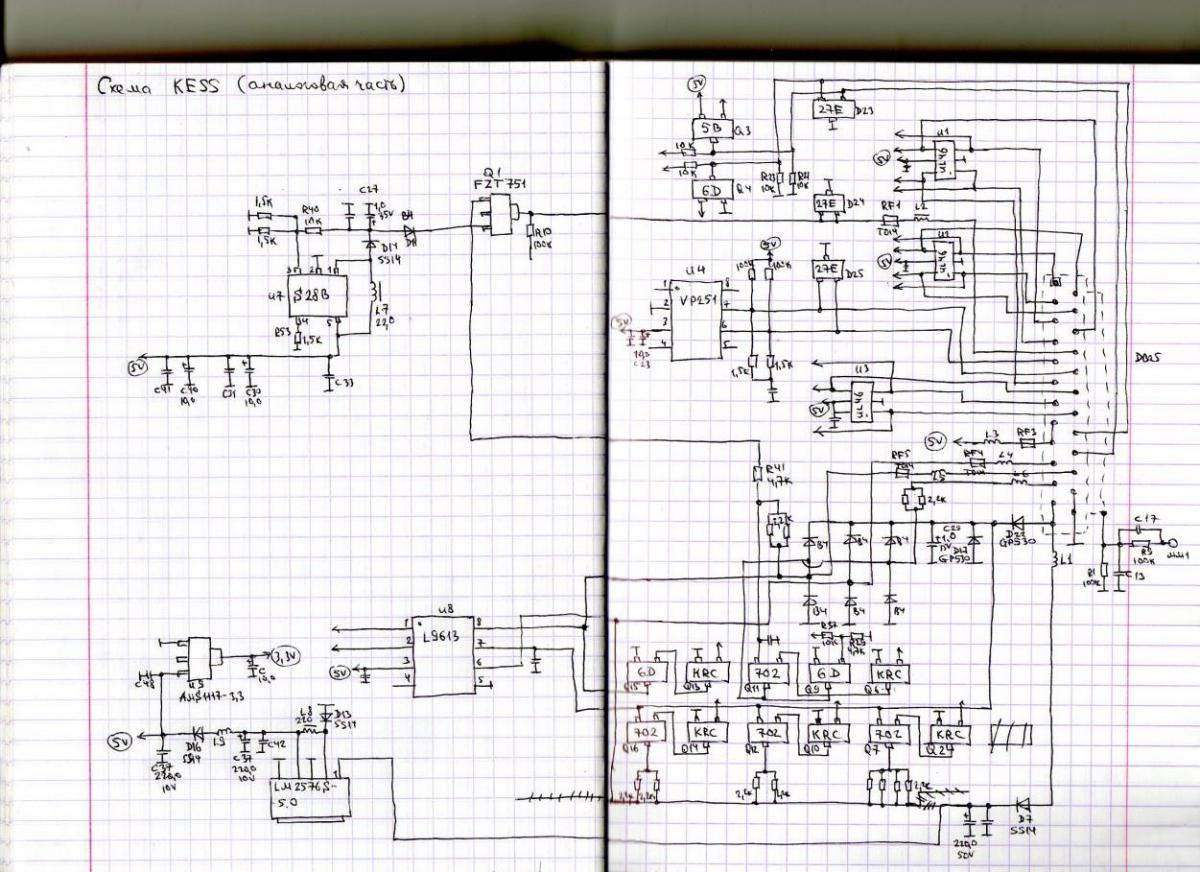 Схема KESS (аналоговая часть)
5V
5B
Q3
27E
D23
10K
10K
6D
Q4
R23
10K
10K
27E
D24
RF1
L2
U1
VL46
5V
U2
VL46
5V
Q1
FZT751
C27
1,0
75V
1,5K
R40
1,5K
R10
100K
D14
SS14
U7
S28B
L7
22,0
R53
1,5K
5V
C41
C40
10,0
C31
C30
10,0
C33
5V
100K
100K
27E
D25
U4
VP251
1
2
3
4
8
7
6
5
5V
10,0
C23
1,5K
1,5K
U3
VL46
5V
DB25
5V
L3
RF3
RF5
RF4
L4
L5
L6
2,2K
R41
4,7K
B4
B4
B4
C29
1,0
D17
GP530
D22
GP530
L1
C17
R9
100K
R1
100K
C13
B4
B4
B4
U8
L9613
1
2
3
4
8
7
6
5
5V
R37
10K
4,7K
6D
Q15
KRC
Q13
702
Q11
6D
Q9
KRC
Q6
702
Q16
KRC
Q14
702
Q12
KRC
Q10
702
Q7
KRC
Q24
U5
AMS1117-3,3
3,3V
C
10,0
C48
5V
D16
SS19
L9
C37
220,0
10V
C37
220,0
10V
C42
L8
220
D13
SS14
LM2576S-
5.0
2,2K
2,2K
2,2K
2,2K
D7
SS14
220,0
50V